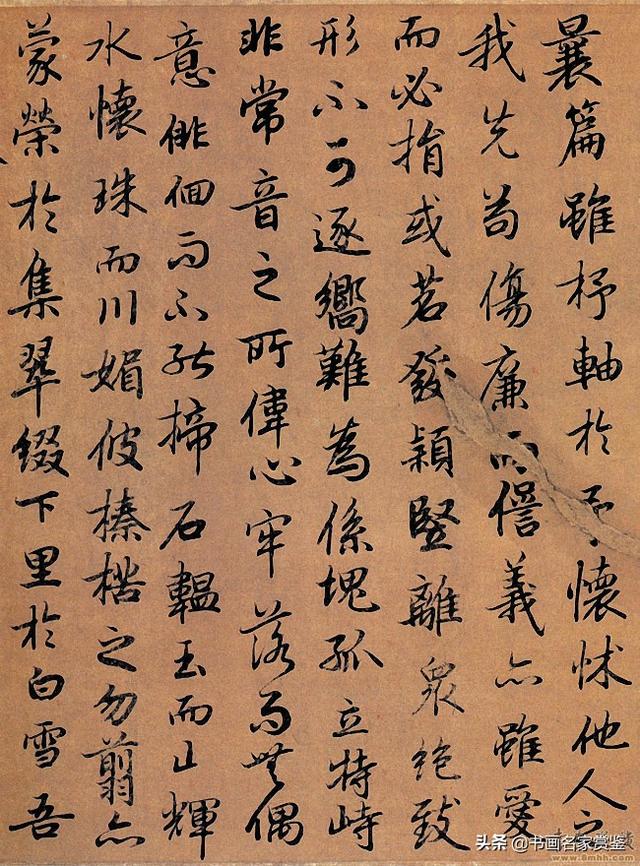 曩篇雖杼軸於予懷怵他人之
我先苟傷廉而僁義亦雖愛
而必捐或苕發穎竪離衆絶致
形不可逐嚮難為係塊孤立特峙
非常音之所偉心牢落而無偶
意俳佪而不能揥石韞玉而山輝
水懷珠而川媚彼榛楛之勿翦亦
蒙榮於集翠綴下里於白雪吾
头条 @书画名家赏鉴
www.8mhh.com